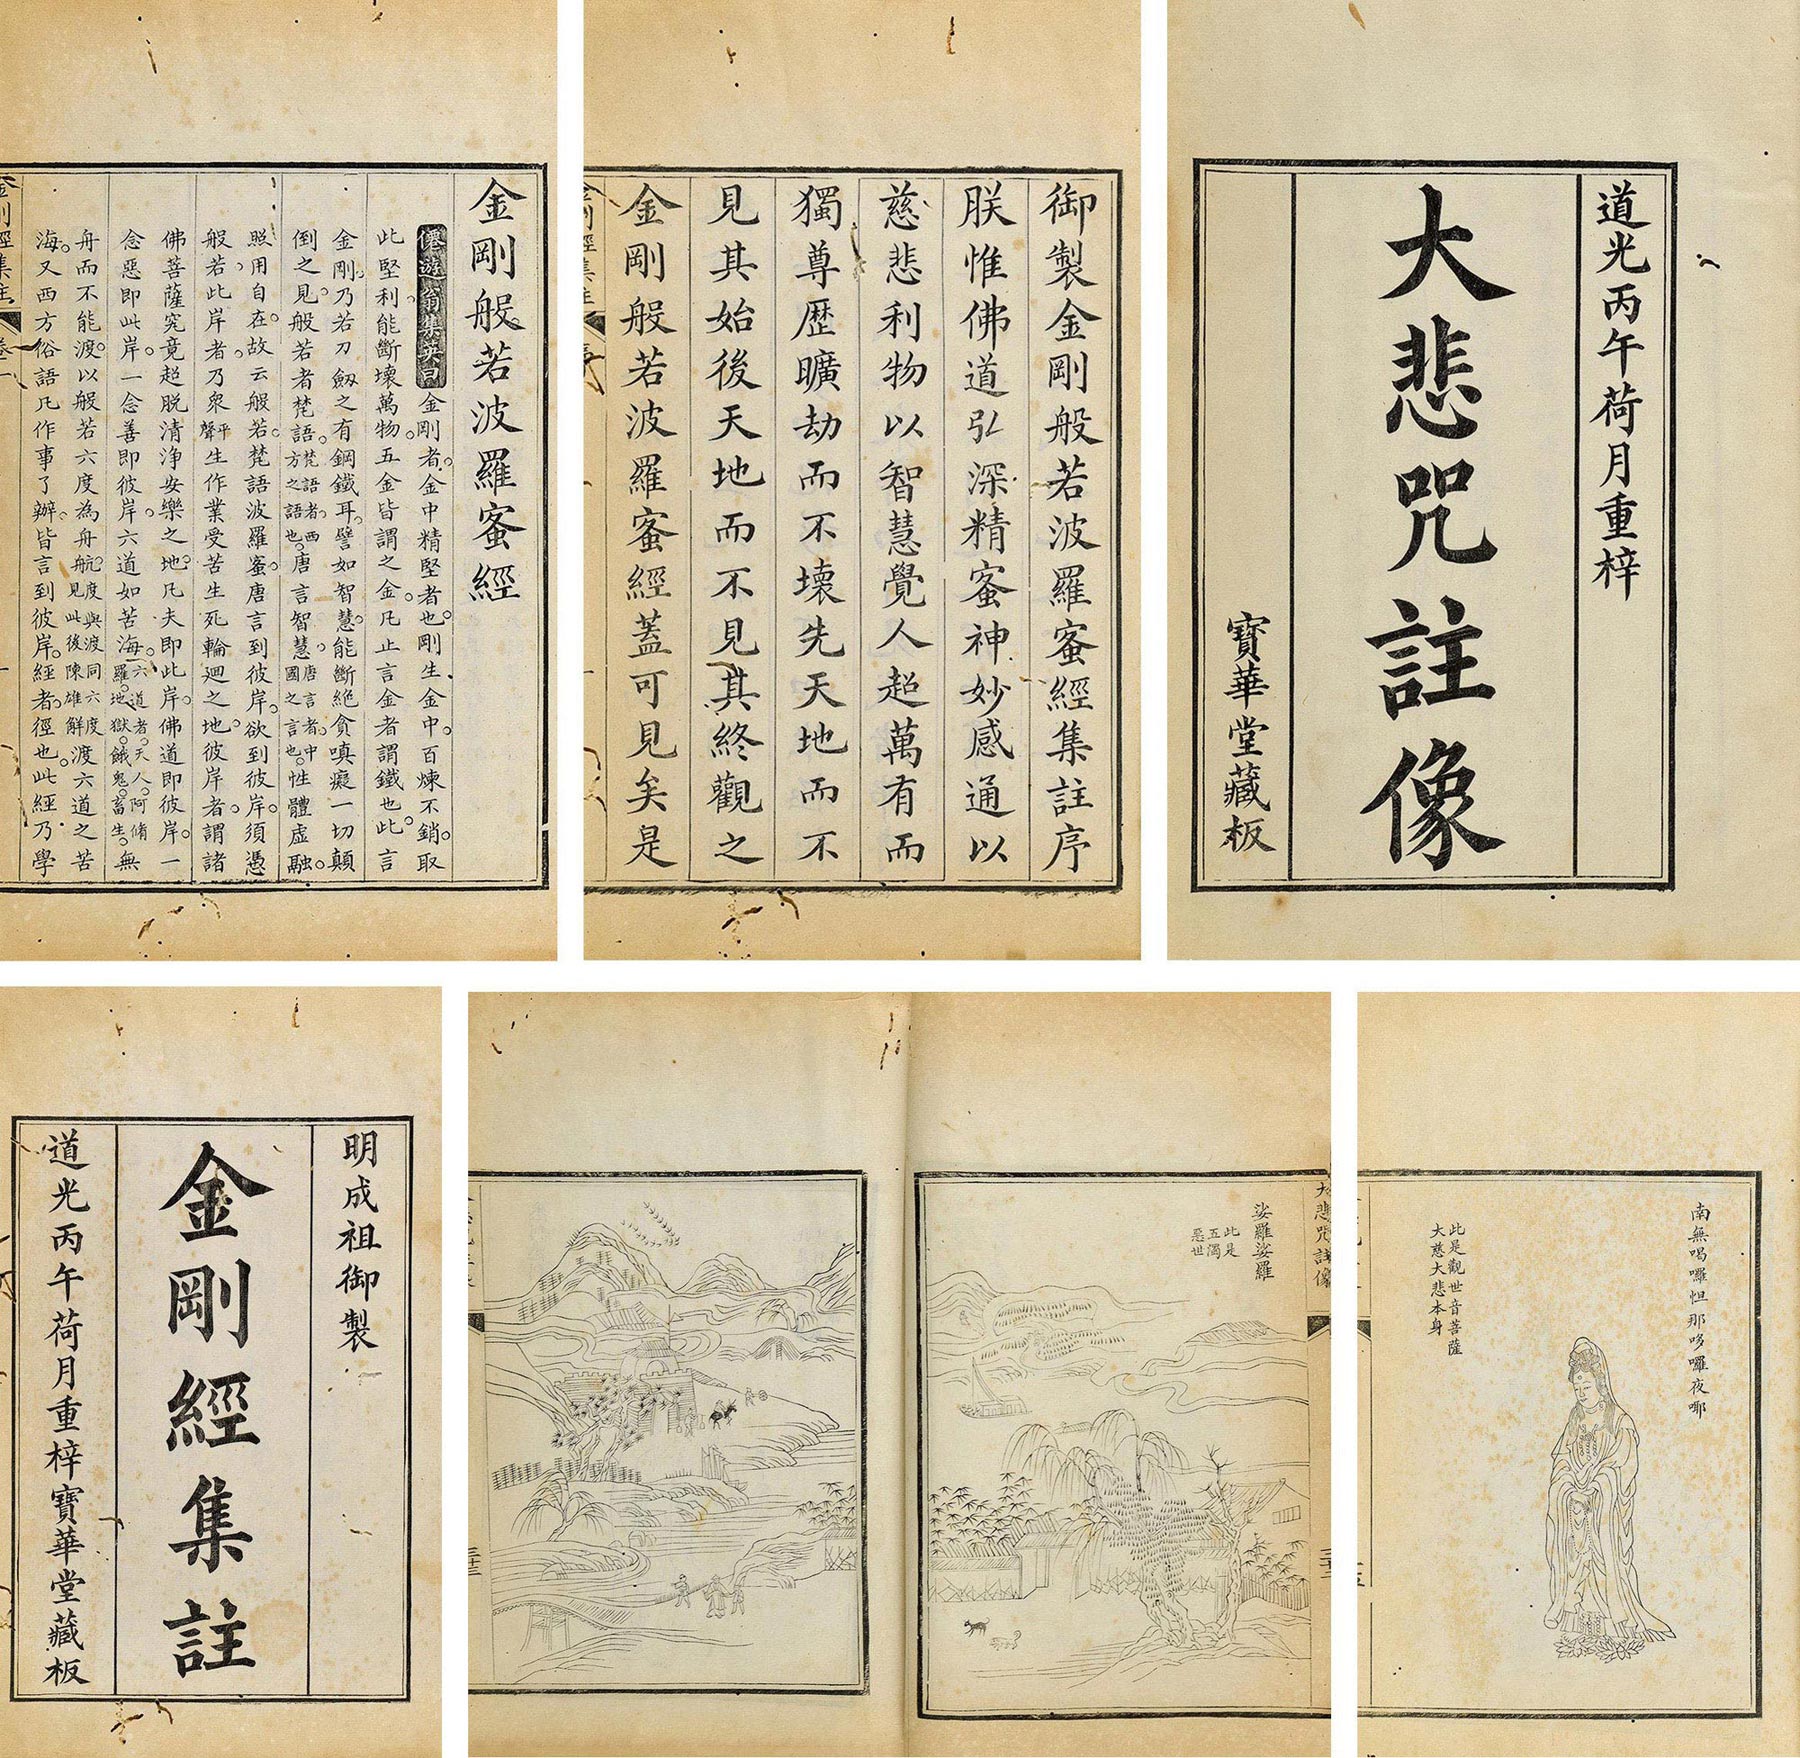 金剛般若波羅蜜經
僊遊翁集英曰金剛者金中精堅者也剛生金中百煉不銷取
此堅利能斷壞萬物五金皆謂之金凡止言金者謂鐵也此言
金剛乃若刀劒之有鋼鐵耳譬如智慧能斷絶貪嗔癡一切顛
倒之見般若者梵語梵語者西方之語也唐言智慧唐言者中國之言也性體虛融
照用自在故云般若梵語波羅蜜唐言到彼岸欲到彼岸須憑
般若此岸者乃衆平聲生作業受苦生死輪廻之地彼岸者謂諸
佛菩薩究竟超脱清淨安樂之地凡夫即此岸佛道即彼岸一
念惡即此岸一念善即彼岸六道如苦海六道者天人阿脩羅地獄餓鬼畜生無
舟而不能渡以般若六度為舟航度與渡同六度見此後陳雄解渡六道之苦
海又西方俗語凡作事了辦皆言到彼岸經者徑也此經乃學
金剛經集註
卷一
一
御製金剛般若波羅蜜經集註序
朕惟佛道弘深精蜜神妙感通以
慈悲利物以智慧覺人超萬有而
獨尊歷曠劫而不壞先天地而不
見其始後天地而不見其終觀之
金剛般若波羅蜜經蓋可見矣是
金剛經集註
序
一
道光丙午荷月重梓
大悲咒註像
寶華堂藏板
明成祖御製
金剛經集註
道光丙午荷月重梓寶華堂藏板
大悲咒註像
娑羅娑羅
此是
五濁
惡世
三十三
南無喝囉怛那哆囉夜㖿
此是觀世音菩薩
大慈大悲本身